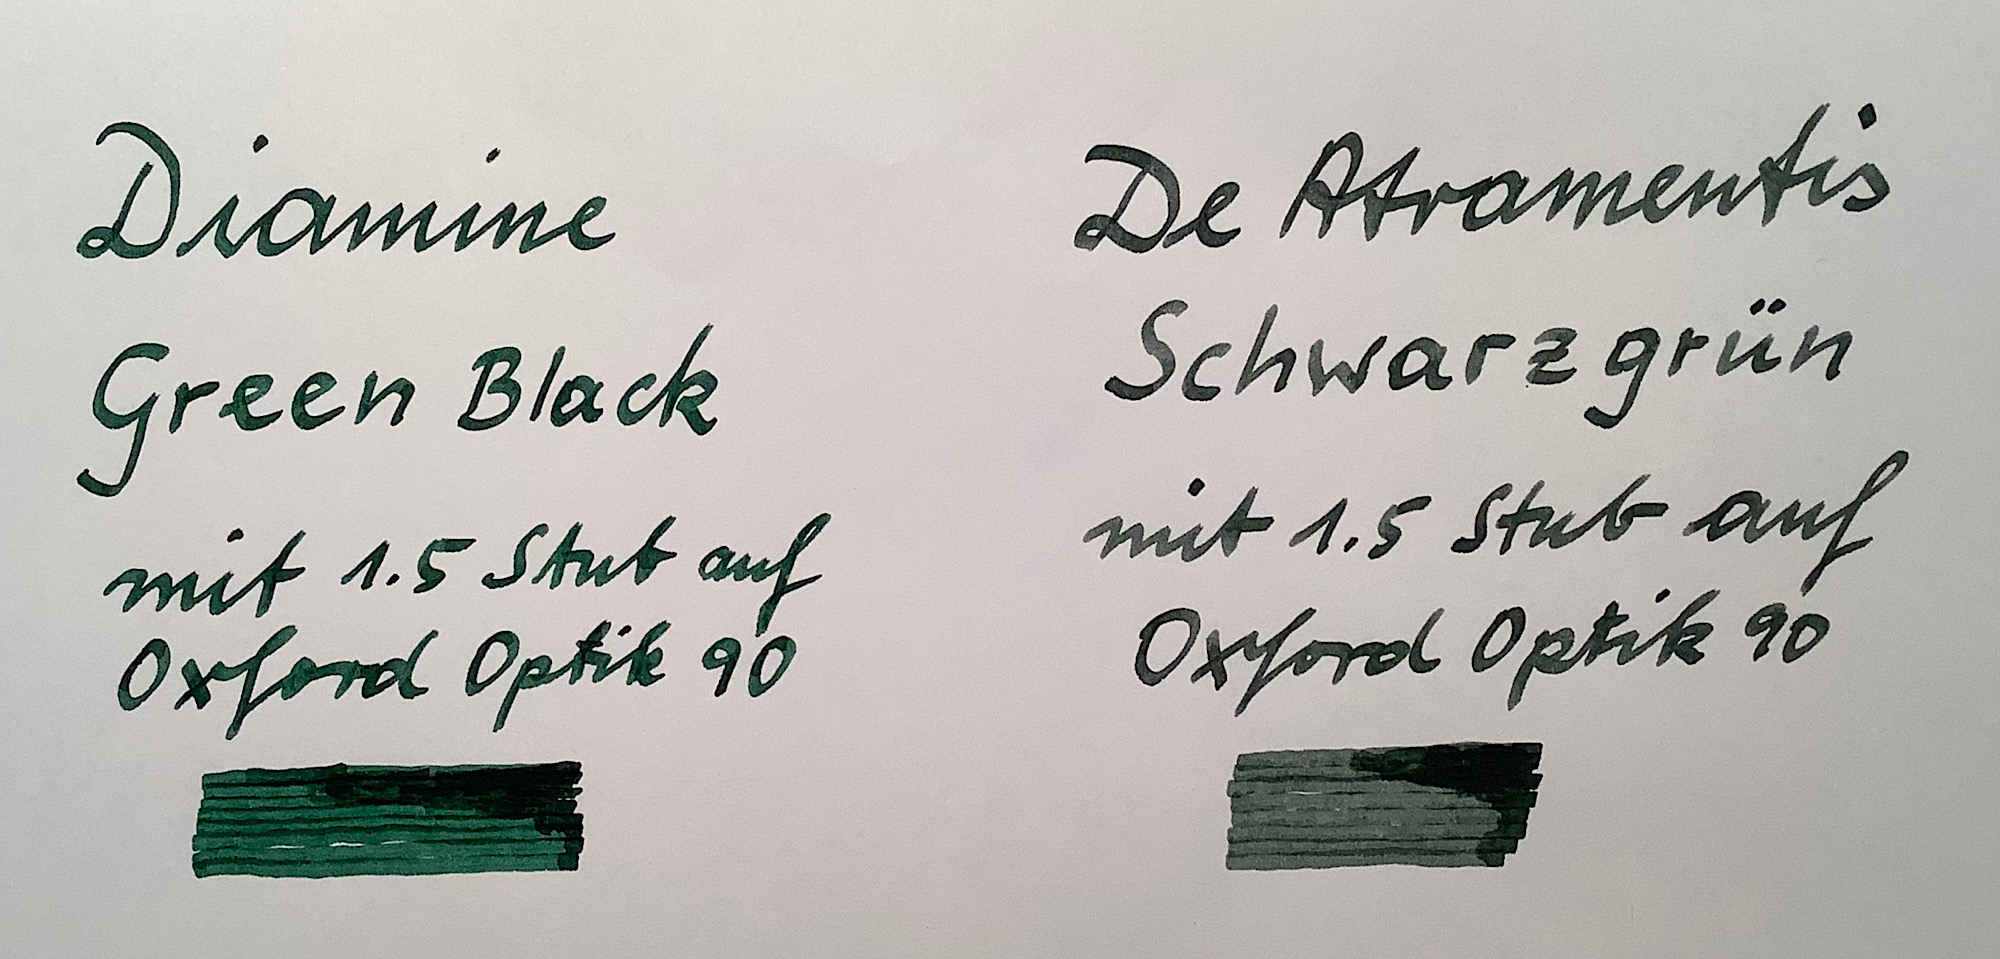 Diamine
Green Black
mit 1.5 Stub auf
Oxford Optik 90
De Atramentis
Schwarzgrün
mit 1.5 Stub auf
Oxford Optik 90